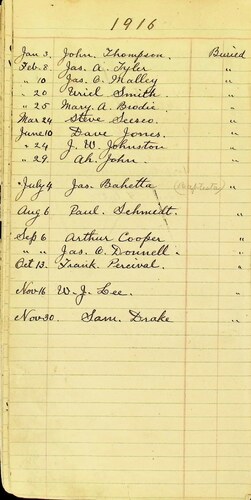 1916
Jan 3. John. Thompson. Buried
Feb. 8. Jas. A. Tyler "
" 10 Jas. C. Malley "
" 20 Uriel Smith "
" 25 Mary. A. Brodie. "
Mar 24 Steve Secsco. "
June 10 Dave Jones. "
" 24 J. W. Johnston "
" 29. Ah. John. "
July 4 Jas. Bahetta "
Aug 6 Paul. Schmidt. "
Sep 6 Arthur Cooper "
" " Jas. C. Donnell. "
Oct 13. Frank. Percival. "
Nov 16 W. J. Lee. "
Nov 30. Sam. Drake "